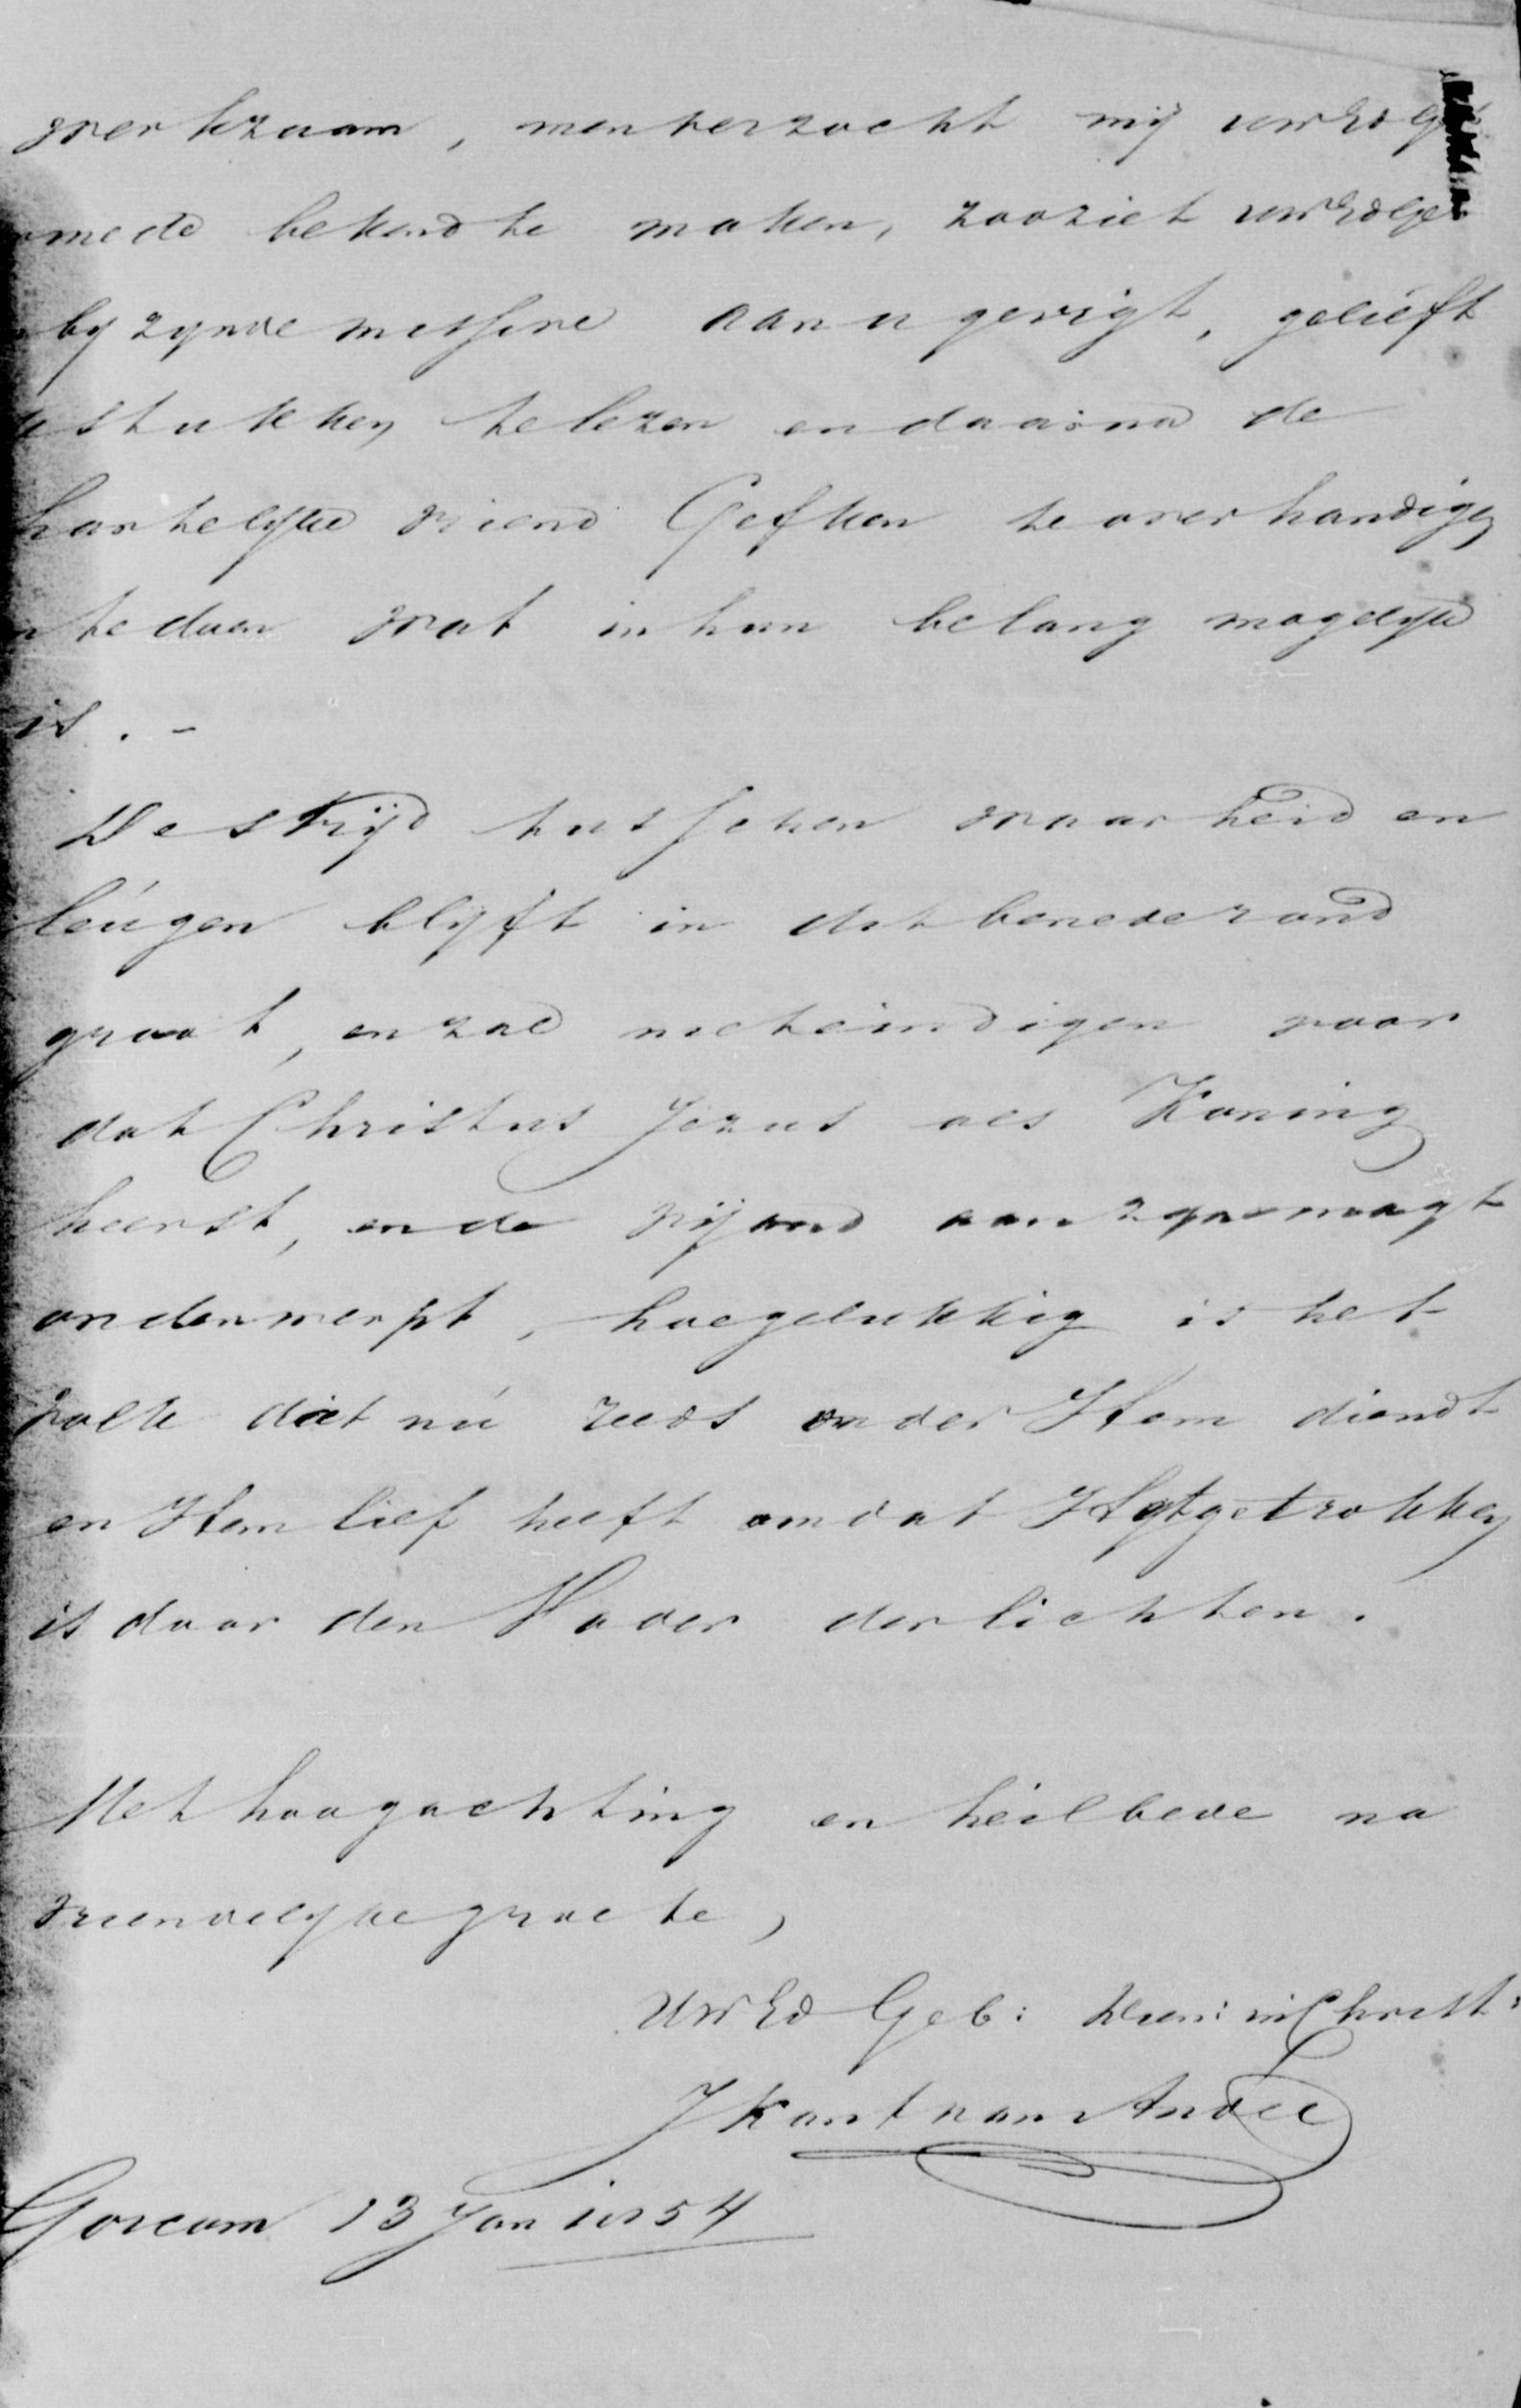 werkzaam, men verzocht mij uwEdelge
mede bekend te maken, zoo ziet uwEdelgeb
by zynde missive aan u gerigt, gelieft
stukken te lezen en daarna de
hartelyke vriend Gefken te overhandigen
te doen wat in hun belang mogelyk
is. -
De stryd tusschen waarheid en
leúgen blyft in dit benederand
groot, en zal niet eindigen voor
dat Christus Jezus als Koning
heerst, en de vyand aan zyn magt
onderwerpt, hoe gelukkig is het
volk dat nú reeds onder Hem diendt
en Hem lief heeft omdat Hy getrokken
is door den Vader der lichten.
Met hoogachting en heilbede na
vriendelyke groete,
UwEd Geb: Dien: in Christ:
J Kant van Andel
Gorcum 13 Jan 1854